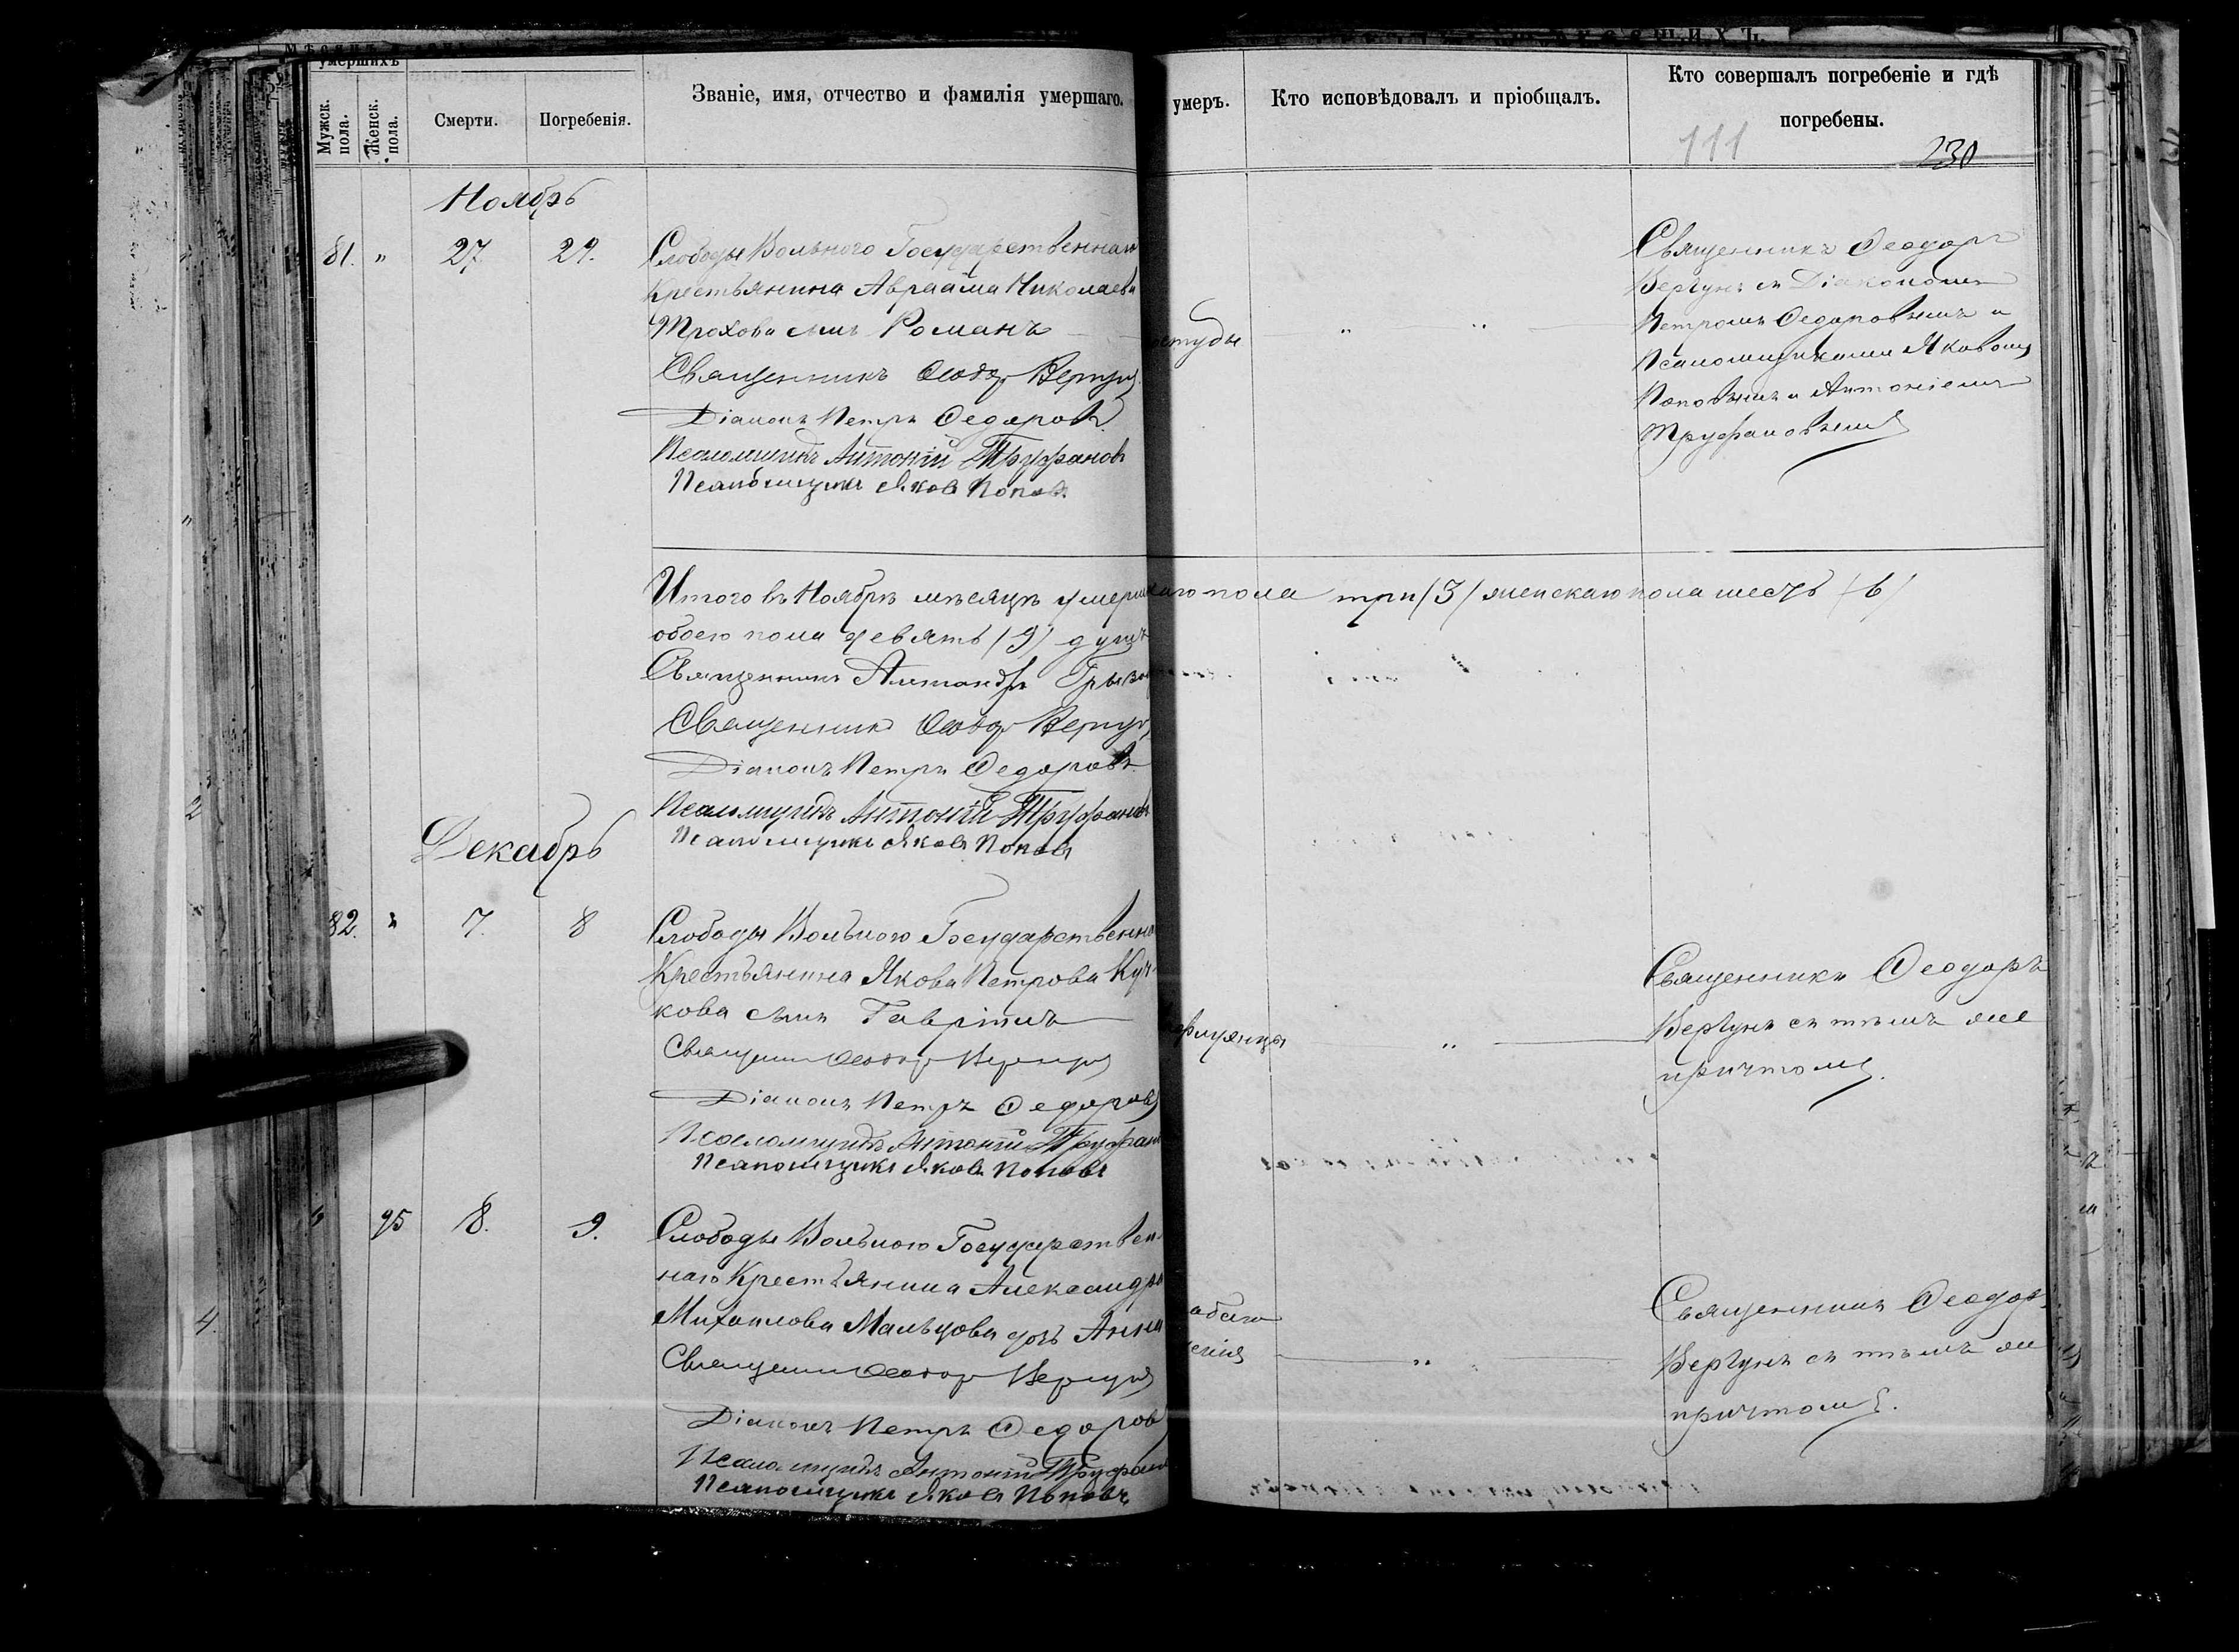 умершихъ
Мужск. пола.
Женск. пола.
Смерти.
Погребенія.
Званіе, имя, отчество и фамилія умершаго.
умеръ.
Кто исповѣдовалъ и пріобщалъ.
Кто совершалъ погребеніе и гдѣ
погребены.
111
230
Ноябрь
81. " 27 29.
Слободы Вольного Государственнаго
Крестьянина Авраама Николаева
Трохова сынъ Романъ
Священникъ Ѳеодоръ Вергунъ
Діаконъ Петръ Ѳедоровъ
Псаломщикъ Антоній Труфановъ
Псаломщикъ Яковъ Поповъ
студы
" "
Священникъ Ѳеодоръ
Вергунъ съ Діакономъ
Петромъ Ѳедоровымъ и
Псаломщиками Яковомъ
Поповымъ и Антоніемъ
Труфановымъ
Итого въ Ноябрѣ мѣсяцѣ умерш каго пола три (3) женскаго пола шесть (6)
обоего пола девять (9) душъ
Священникъ Александръ
Священникъ Ѳеодоръ Вергунъ
Діаконъ Петръ Ѳедоровъ
Псаломщикъ Антоній Труфановъ
Псаломщикъ Яковъ Поповъ
Декабрь
82. " 7. 8
Слободы Вольного Государственна
Крестьянина Якова Петрова Куч-
кова сынъ Гавріилъ
Священник Ѳеодоръ Вергунъ
Діаконъ Петръ Ѳедоровъ
Псаломщикъ Антоній Труфан
Псаломщикъ Яковъ Поповъ
"
Священникъ Ѳеодоръ
Вергунъ съ тѣмъ же
причтомъ.
" 95 8. 9.
Слободы Вольного Государствен-
наго Крестьянина Александра
Михаилова Мальцова дочь Анна
Священник Ѳеодоръ Вергунъ
Діаконъ Петръ Ѳедоровъ
Псаломщикъ Антоній Труфан
Псаломщикъ Яковъ Поповъ
абаго
женія
"
Священникъ Ѳеодоръ
Вергунъ съ тѣмъ же
причтомъ.